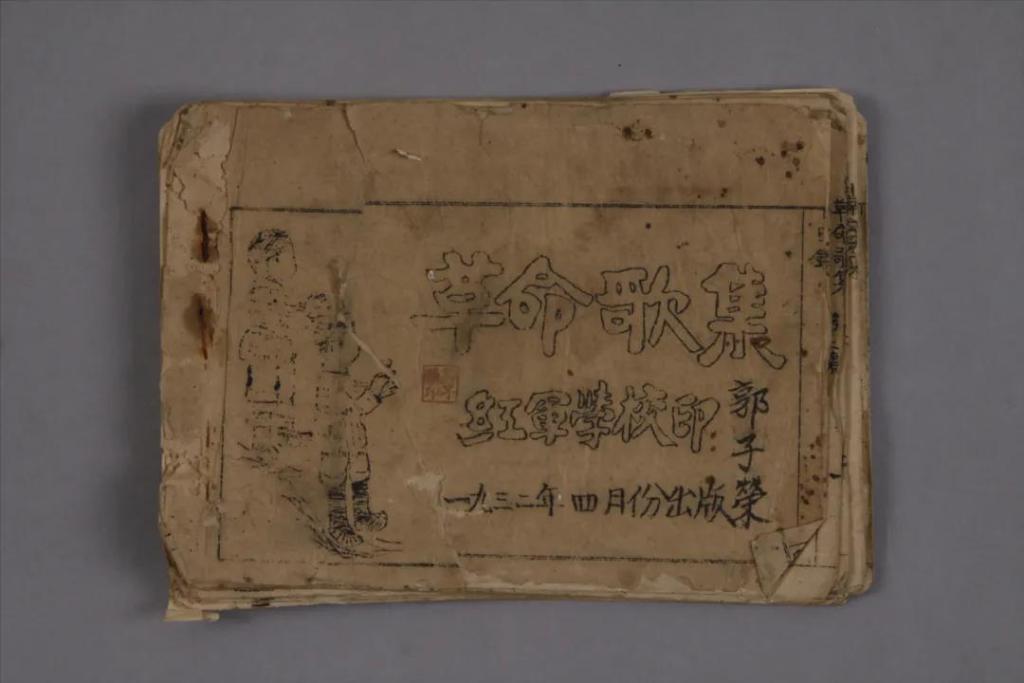 革命歌集
紅軍學校印
一九三二年 四月份出版
郭子榮